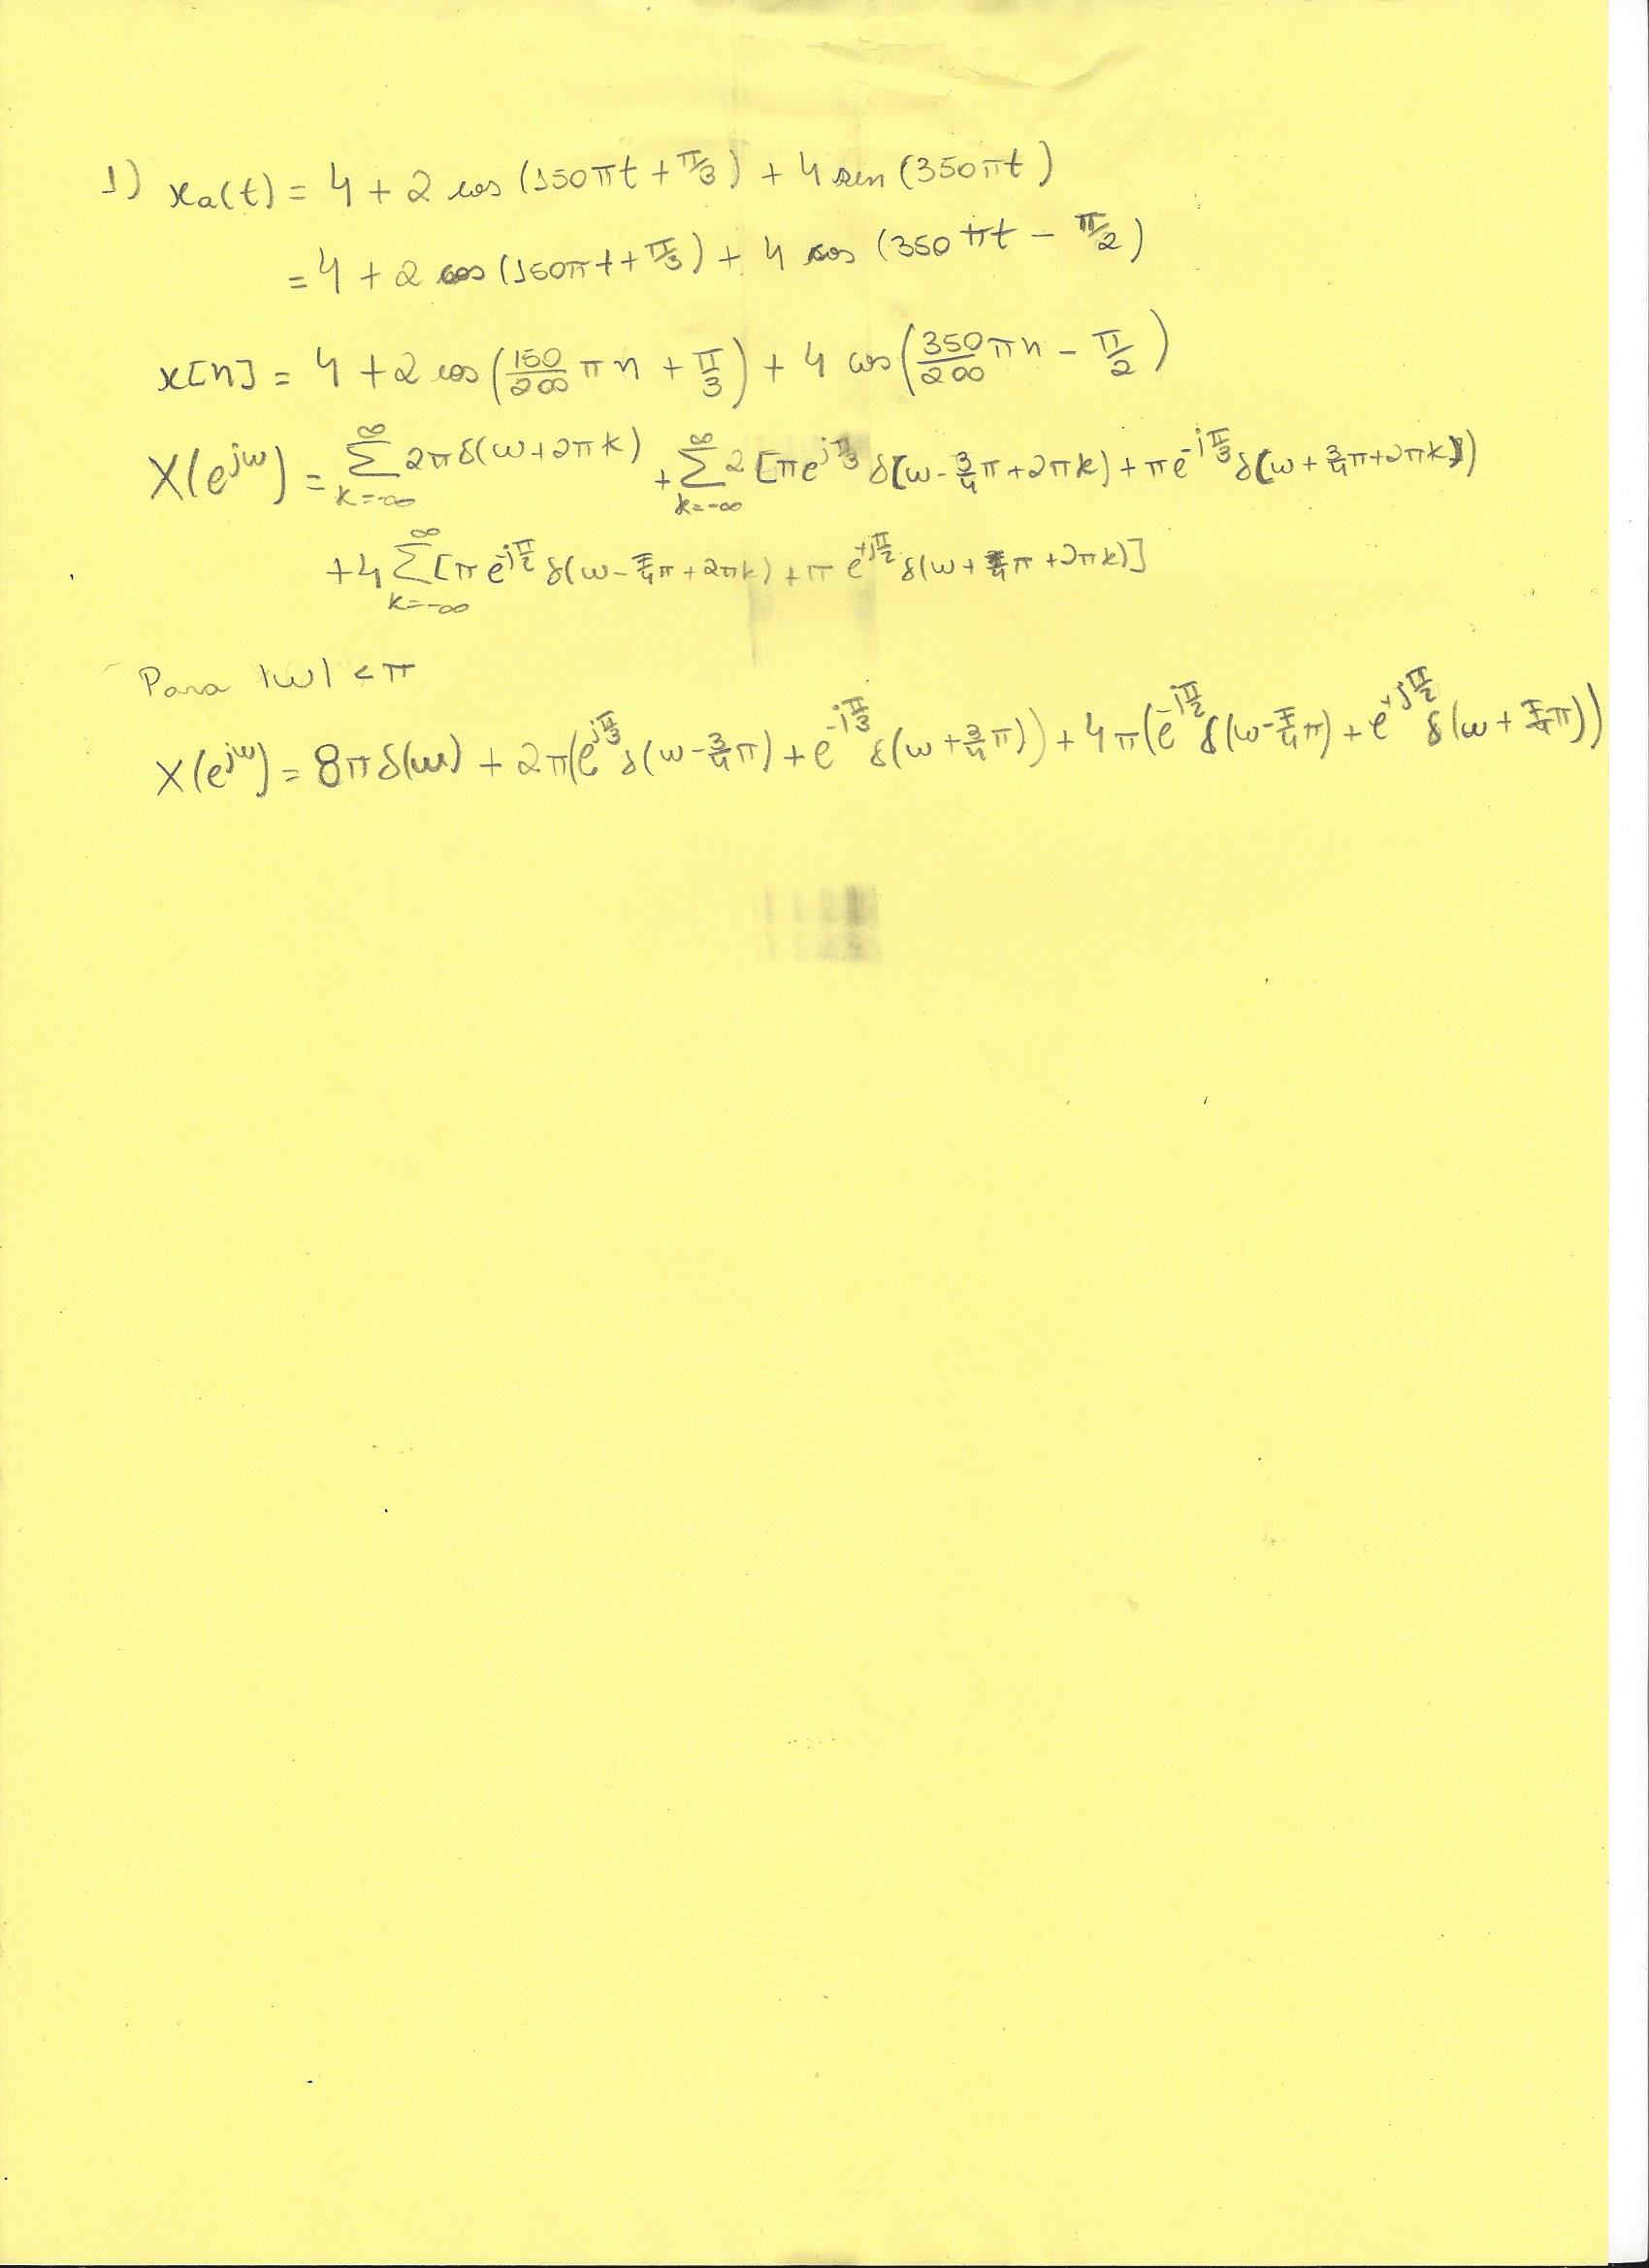 1) xₐ(t) = 4 + 2 cos (150πt + π/3) + 4 sen (350πt)
= 4 + 2 cos (150πt + π/3) + 4 cos (350πt − π/2)
x[n] = 4 + 2 cos (150/200 πn + π/3) + 4 cos (350/200 πn − π/2)
X(e^jω) = ∑_{k=-∞}^{∞} 2πδ(ω+2πk) + ∑_{k=-∞}^{∞} 2 [πe^{jπ/3} δ[ω − 3/4 π + 2πk) + πe^{-jπ/3} δ[ω + 3/4 π + 2πk])
+ 4 ∑_{k=-∞}^{∞} [πe^{-jπ/2} δ(ω − 7/4 π + 2πk) + πe^{+jπ/2} δ(ω + 7/4 π + 2πk)]
Para |ω| < π
X(e^jω) = 8πδ(ω) + 2π(e^{jπ/3} δ(ω − 3/4 π) + e^{-jπ/3} δ(ω + 3/4 π)) + 4π(e^{-jπ/2} δ(ω − 7/4 π) + e^{+jπ/2} δ(ω + 7/4 π))